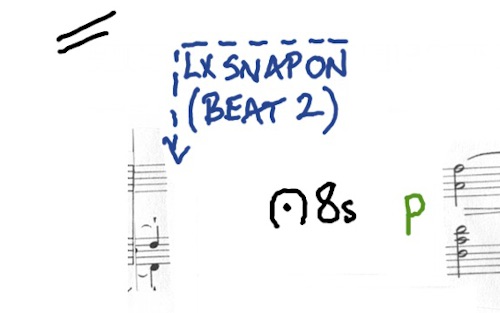 LX SNAP ON
(BEAT 2)
8s
P